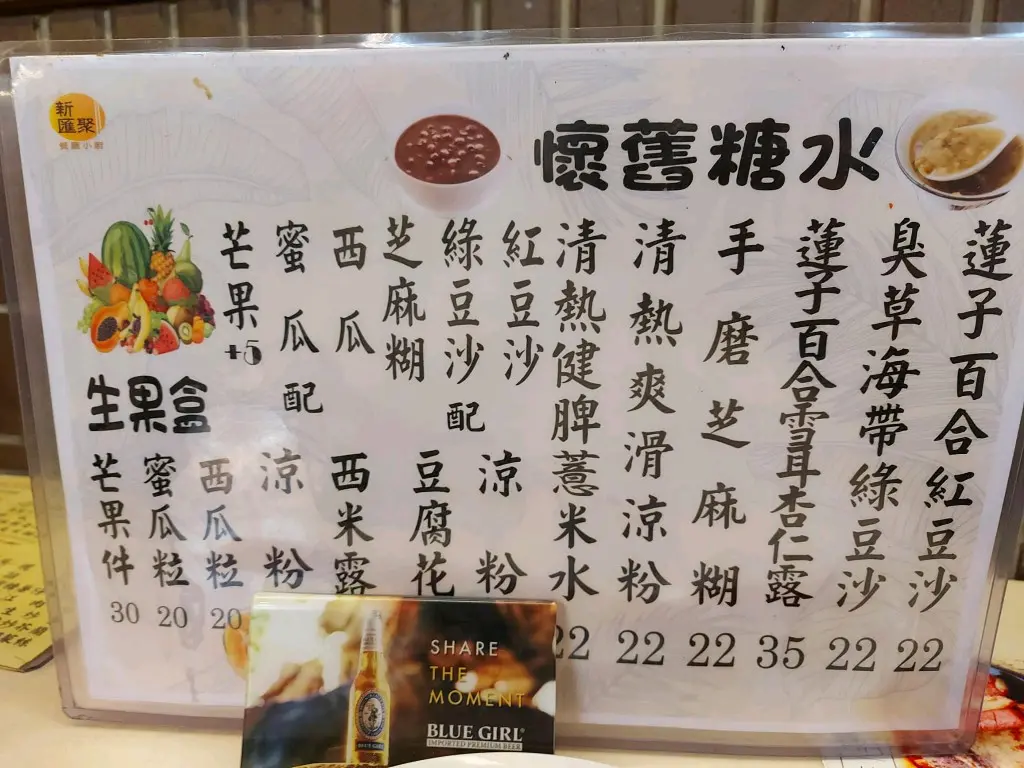 懷舊糖水
蓮子百合紅豆沙 22
臭草海帶綠豆沙 22
蓮子百合雪耳杏仁露 35
手磨芝麻糊 22
清熱爽滑涼粉 22
清熱健脾薏米水 22
紅豆沙
綠豆沙
芝麻糊
配
涼粉
豆腐花
西瓜
蜜瓜
芒果+5
配
西米露
涼粉
生果盒
西瓜粒 20
蜜瓜粒 20
芒果件 30
新匯聚
餐廳小廚
SHARE
THE
MOMENT
BLUE GIRL
IMPORTED PREMIUM BEER
BLUE GIRL